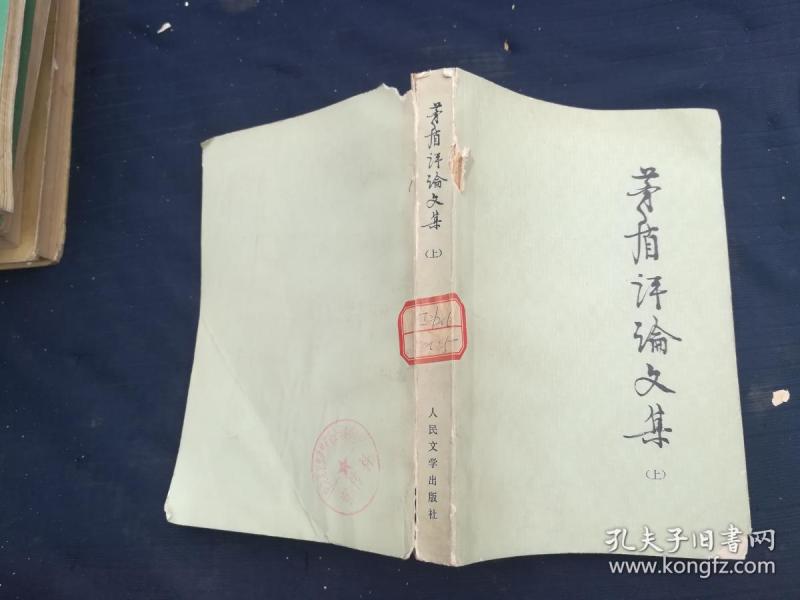 茅盾评论文集
(上)
人民文学出版社
茅盾评论文集
(上)
孔夫子旧书网
www.kongfz.com